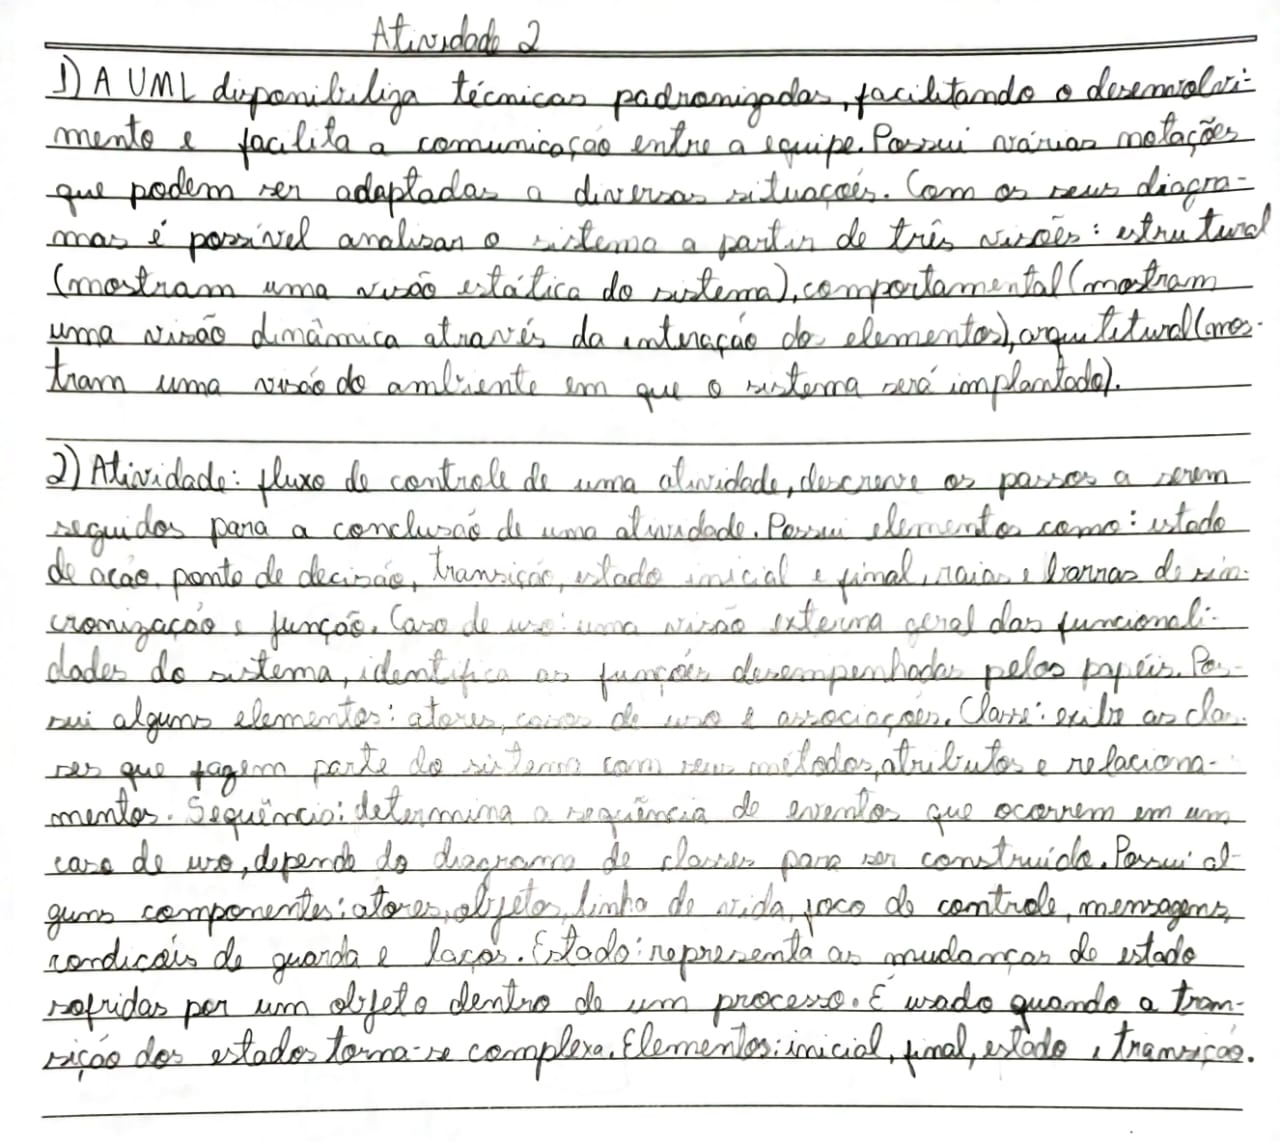 Atividade 2
1) A UML disponibiliza técnicas padronizadas, facilitando o desenvolvi-
mento e facilita a comunicação entre a equipe. Possui várias notações
que podem ser adaptadas a diversas situações. Com os seus diagra-
mas é possível analisar o sistema a partir de três visões: estrutural
(mostram uma visão estática do sistema), comportamental (mostram
uma visão dinâmica através da interação dos elementos), arquitetural (mos-
tram uma visão do ambiente em que o sistema será implantado).
2) Atividade: fluxo de controle de uma atividade, descreve os passos a serem
seguidos para a conclusão de uma atividade. Possui elementos como: estado
de ação, ponto de decisão, transição, estado inicial e final, raias e barras de sin-
cronização e junção. Caso de uso: uma visão externa geral das funcionali-
dades do sistema, identifica as funções desempenhadas pelos papéis. Pos-
sui alguns elementos: atores, casos de uso e associações. Classe: exibe as clas-
ses que fazem parte do sistema com seus métodos, atributos e relaciona-
mentos. Sequência: determina a sequência de eventos que ocorrem em um
caso de uso, depende do diagrama de classes para ser construído. Possui al-
guns componentes: atores, objetos, linha de vida, foco de controle, mensagens,
condições de guarda e laços. Estado: representa as mudanças de estado
sofridas por um objeto dentro de um processo. É usado quando a tran-
sição dos estados torna-se complexa. Elementos: inicial, final, estado e transição.